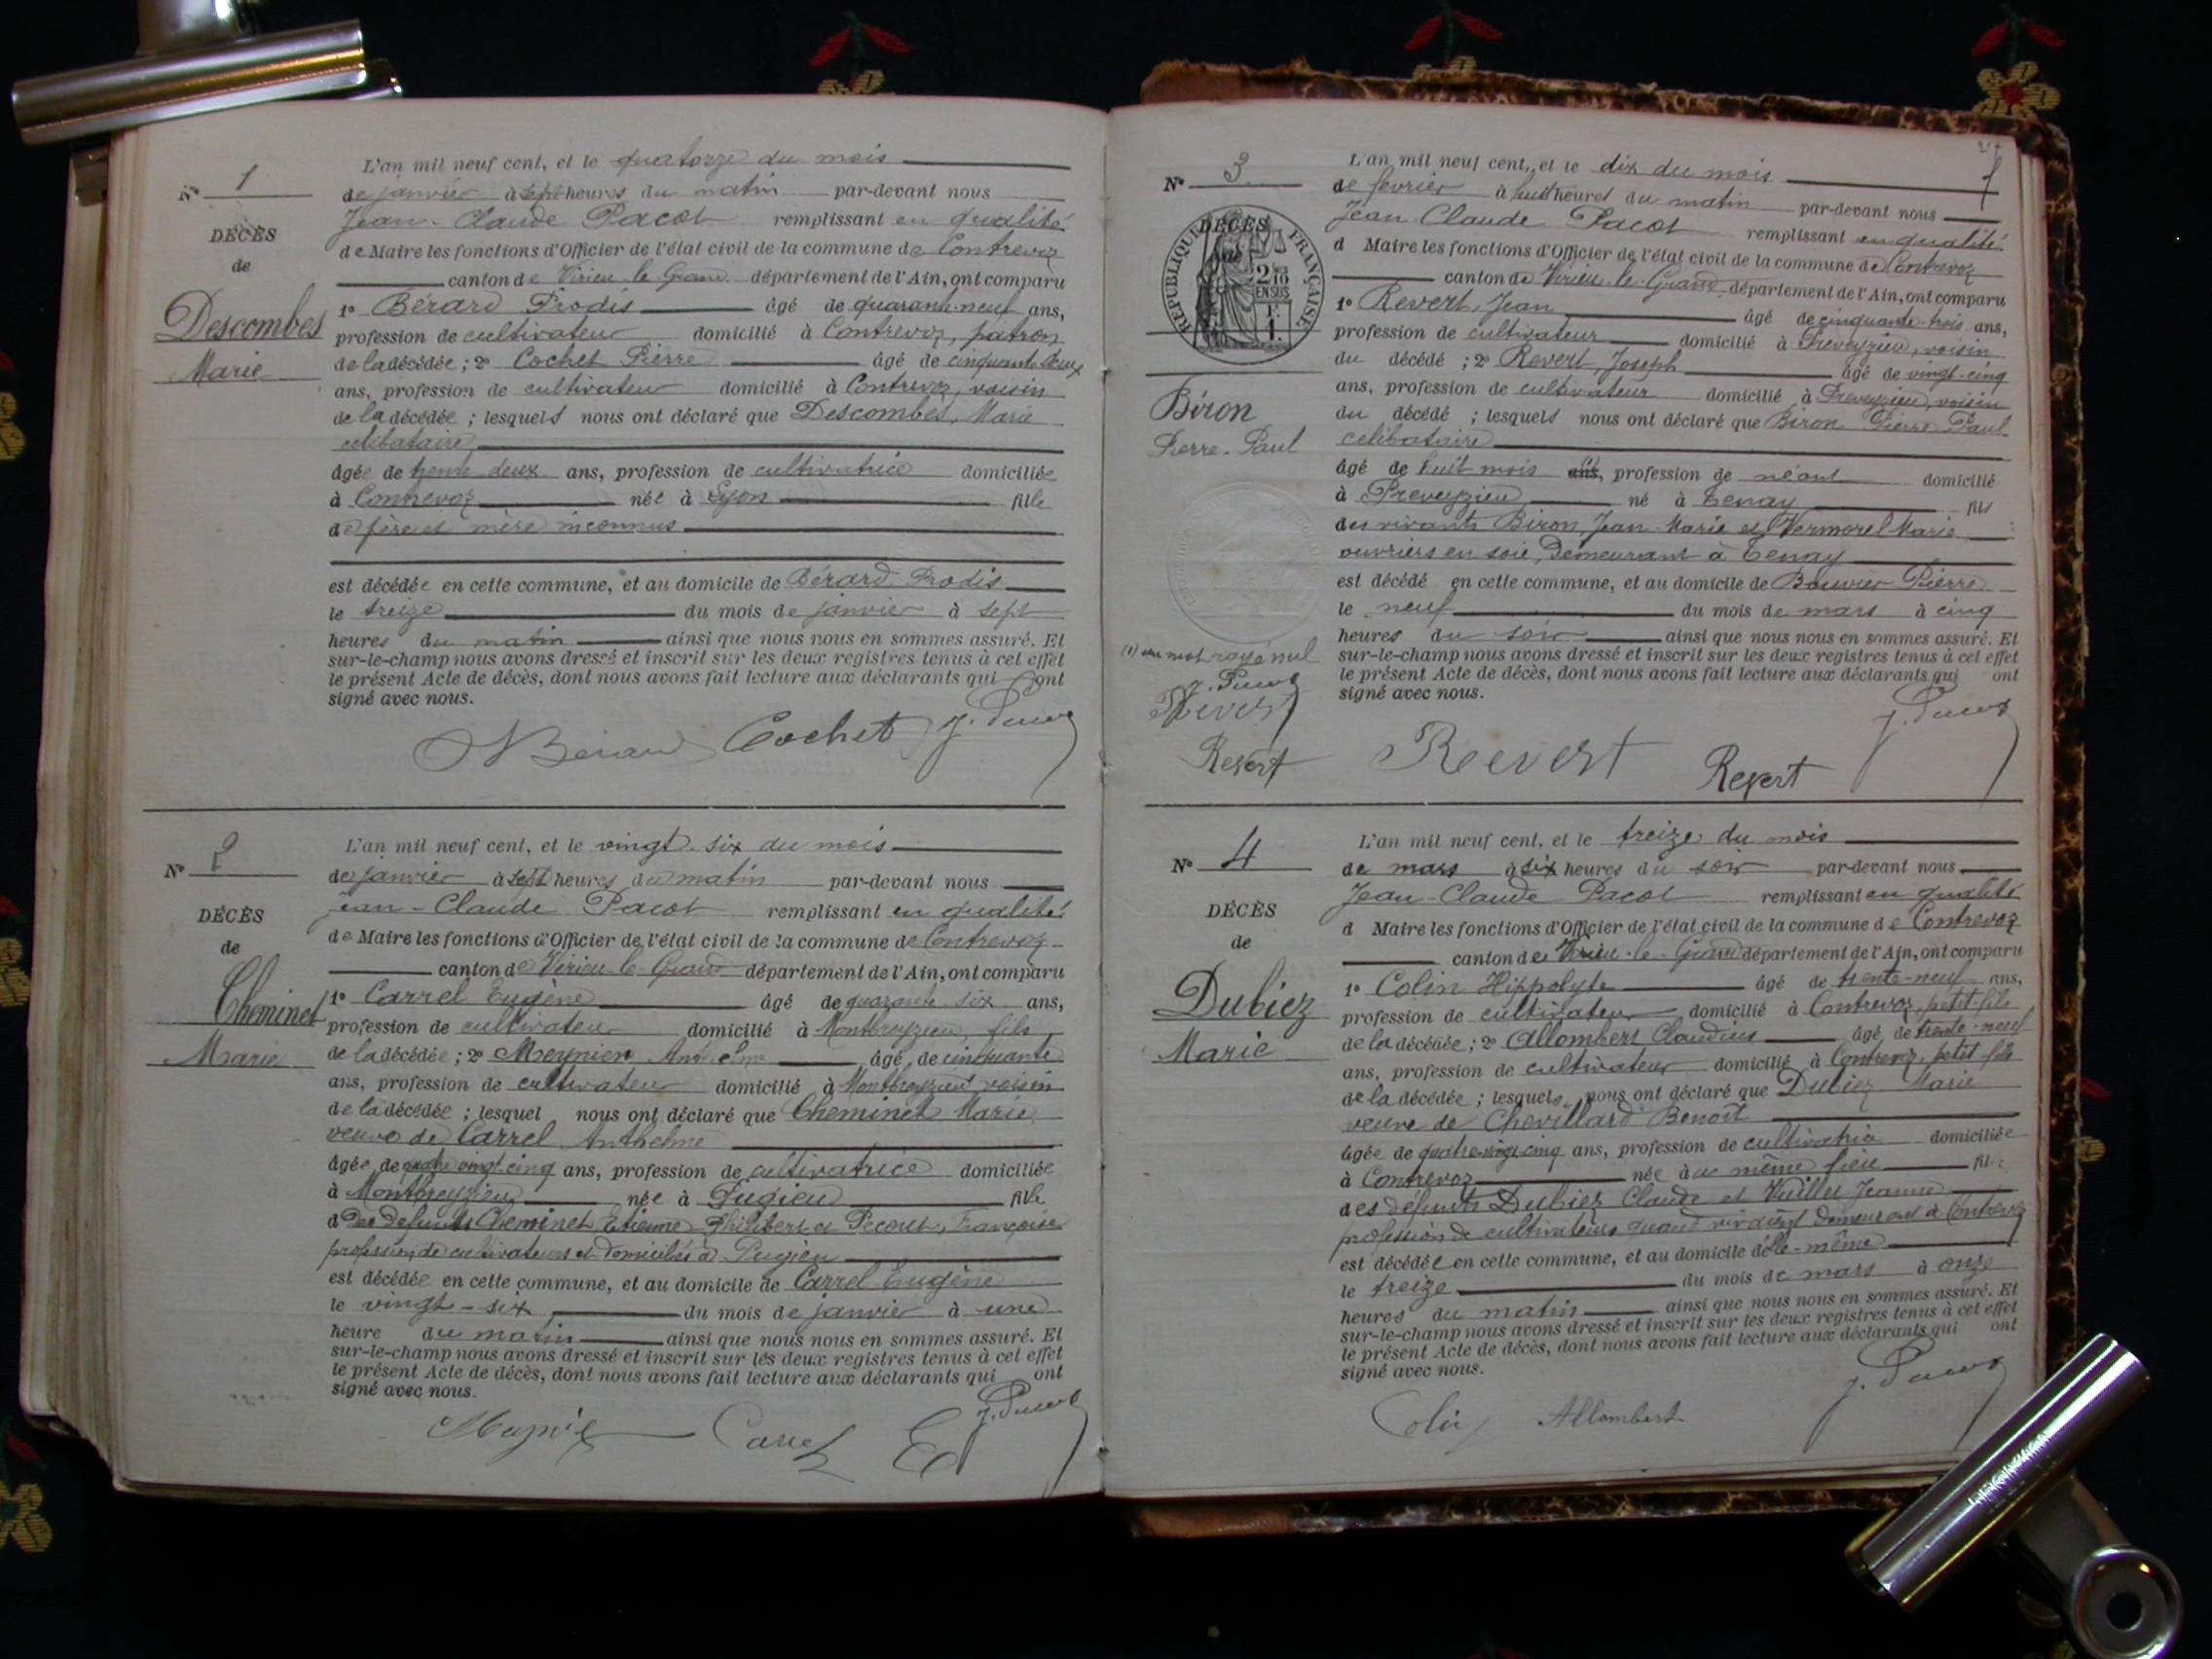 N° 1
DÉCÈS
de
Descombes
Marie
L'an mil neuf cent, et le quatorze du mois
de janvier à sept heures du matin par-devant nous
Jean-Claude Pacot remplissant en qualité
de Maire les fonctions d'Officier de l'état civil de la commune de Contrevoz
canton de Virieu-le-Grand département de l'Ain, ont comparu
1° Bérard Prodis âgé de quarante-neuf ans,
profession de cultivateur domicilié à Contrevoz, patron
de la décédée ; 2° Cochet Pierre âgé de cinquante deux
ans, profession de cultivateur domicilié à Contrevoz, voisin
de la décédée ; lesquels nous ont déclaré que Descombes, Marie
célibataire
âgée de trente deux ans, profession de cultivatrice domiciliée
à Contrevoz née à Lyon fille
de père et mère inconnus
est décédée en cette commune, et au domicile de Bérard Prodis
le treize du mois de janvier à sept
heures du matin ainsi que nous nous en sommes assuré. Et
sur-le-champ nous avons dressé et inscrit sur les deux registres tenus à cet effet
le présent Acte de décès, dont nous avons fait lecture aux déclarants qui ont
signé avec nous.
Bérard Cochet J. Pacot
N° 2
DÉCÈS
de
Cheminet
Marie
L'an mil neuf cent, et le vingt-six du mois
de janvier à sept heures du matin par-devant nous
Jean-Claude Pacot remplissant en qualité
de Maire les fonctions d'Officier de l'état civil de la commune de Contrevoz
canton de Virieu-le-Grand département de l'Ain, ont comparu
1° Carrel Eugène âgé de quarante-six ans,
profession de cultivateur domicilié à Montbreyzieu, fils
de la décédée ; 2° Meynier Anthelme âgé de cinquante
ans, profession de cultivateur domicilié à Montbreyzieu voisin
de la décédée ; lesquel nous ont déclaré que Cheminet Marie
veuve de Carrel Anthelme
âgée de quatre vingt cinq ans, profession de cultivatrice domiciliée
à Montbreyzieu née à Pugieu fille
d des défunts Cheminet Etienne Philibert et Pecout, Françoise
profession de cultivateurs et domiciliés à Pugieu
est décédée en cette commune, et au domicile de Carrel Eugène
le vingt-six du mois de janvier à une
heure du matin ainsi que nous nous en sommes assuré. Et
sur-le-champ nous avons dressé et inscrit sur les deux registres tenus à cet effet
le présent Acte de décès, dont nous avons fait lecture aux déclarants qui ont
signé avec nous.
Meynier Carrel E J. Pacot
N° 3
DÉCÈS
RÉPUBLIQUE FRANÇAISE
2/10
EN SUS
F.
1.
Biron
Pierre-Paul
(1) un mot rayé nul
J. Pacot
Revert
Revert
L'an mil neuf cent, et le dix du mois
de février à huit heures du matin par-devant nous
Jean Claude Pacot remplissant en qualité
d Maire les fonctions d'Officier de l'état civil de la commune de Contrevoz
canton de Virieu-le-Grand département de l'Ain, ont comparu
1° Revert, Jean âgé de cinquante-trois ans,
profession de cultivateur domicilié à Preveyzieu, voisin
du décédé ; 2° Revert, Joseph âgé de vingt-cinq
ans, profession de cultivateur domicilié à Preveyzieu, voisin
du décédé ; lesquels nous ont déclaré que Biron Pierre Paul
célibataire
âgé de huit mois ans, (1) profession de néant domicilié
à Preveyzieu né à Tenay fils
des vivants Biron, Jean-Marie et Vermorel Marie
ouvriers en soie, demeurant à Tenay
est décédé en cette commune, et au domicile de Bouvier Pierre
le neuf du mois de mars à cinq
heures du soir ainsi que nous nous en sommes assuré. Et
sur-le-champ nous avons dressé et inscrit sur les deux registres tenus à cet effet
le présent Acte de décès, dont nous avons fait lecture aux déclarants qui ont
signé avec nous.
Revert Revert J. Pacot
N° 4
DÉCÈS
de
Dubiez
Marie
L'an mil neuf cent, et le treize du mois
de mars à six heures du soir par-devant nous
Jean-Claude Pacot remplissant en qualité
d Maire les fonctions d'Officier de l'état civil de la commune de Contrevoz
canton de Virieu-le-Grand département de l'Ain, ont comparu
1° Colin Hippolyte âgé de trente-neuf ans,
profession de cultivateur domicilié à Contrevoz, petit-fils
de la décédée ; 2° Allombert Claudius âgé de trente-neuf
ans, profession de cultivateur domicilié à Contrevoz, petit fils
de la décédée ; lesquels nous ont déclaré que Dubiez Marie
veuve de Chevillard Benoît
âgée de quatre-vingt-cinq ans, profession de cultivatrice domiciliée
à Contrevoz née au même lieu fille
des défunts Dubiez Claude et Vuillet Jeanne
profession de cultivateurs quand vivaient demeurant à Contrevoz
est décédée en cette commune, et au domicile d'elle-même
le treize du mois de mars à onze
heures du matin ainsi que nous nous en sommes assuré. Et
sur-le-champ nous avons dressé et inscrit sur les deux registres tenus à cet effet
le présent Acte de décès, dont nous avons fait lecture aux déclarants qui ont
signé avec nous.
Colin Allombert J. Pacot